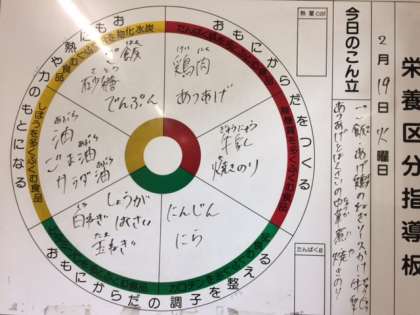 栄養区分指導板
2月19日火曜日
今日のこん立
ご飯・あげ鶏のねぎソースかけ・牛乳
あつあげとはくさいの中華煮・焼きのり
熱量Cal
たんぱくg
おもにからだをつくる
おもにからだの調子を整える
おもに熱や力のもとになる
ご飯
さとう
砂糖
でんぷん
けいにく
鶏肉
あつあげ
ぎゅうにゅう
牛乳
焼きのり
にんじん
にら
しょうが
白ねぎ
はくさい
たま
玉ねぎ
あぶら
油
あぶら
ごま油
あぶら
サラダ油